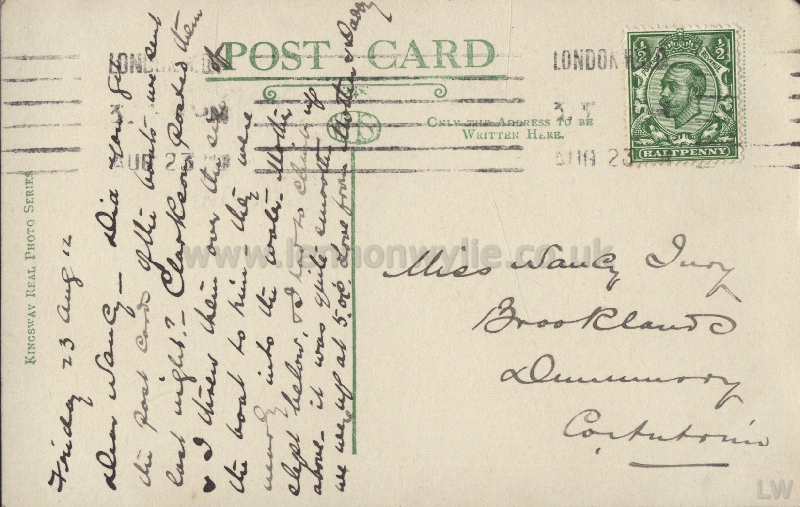 POST CARD
LONDON W.D
AUG 23
LONDON W.D
AUG 23
½ ½
HALFPENNY
ONLY THE ADDRESS TO BE
WRITTEN HERE.
KINGSWAY REAL PHOTO SERIES
Friday 23 Aug 12
Dear Nancy - Did you get
the post cards of the boats we sent
last night? - Clarkson Posted them
& I threw them over the side of
the boat to him - they were
nearly into the water. Mother
slept below. & I had to climb up
above - it was quite smooth -
we were up at 5.0c. Love from Mother & Daddy
Miss Nancy Jury
Brooklands
Dunmurry
Co. Antrim
www.lennonwylie.co.uk
LW